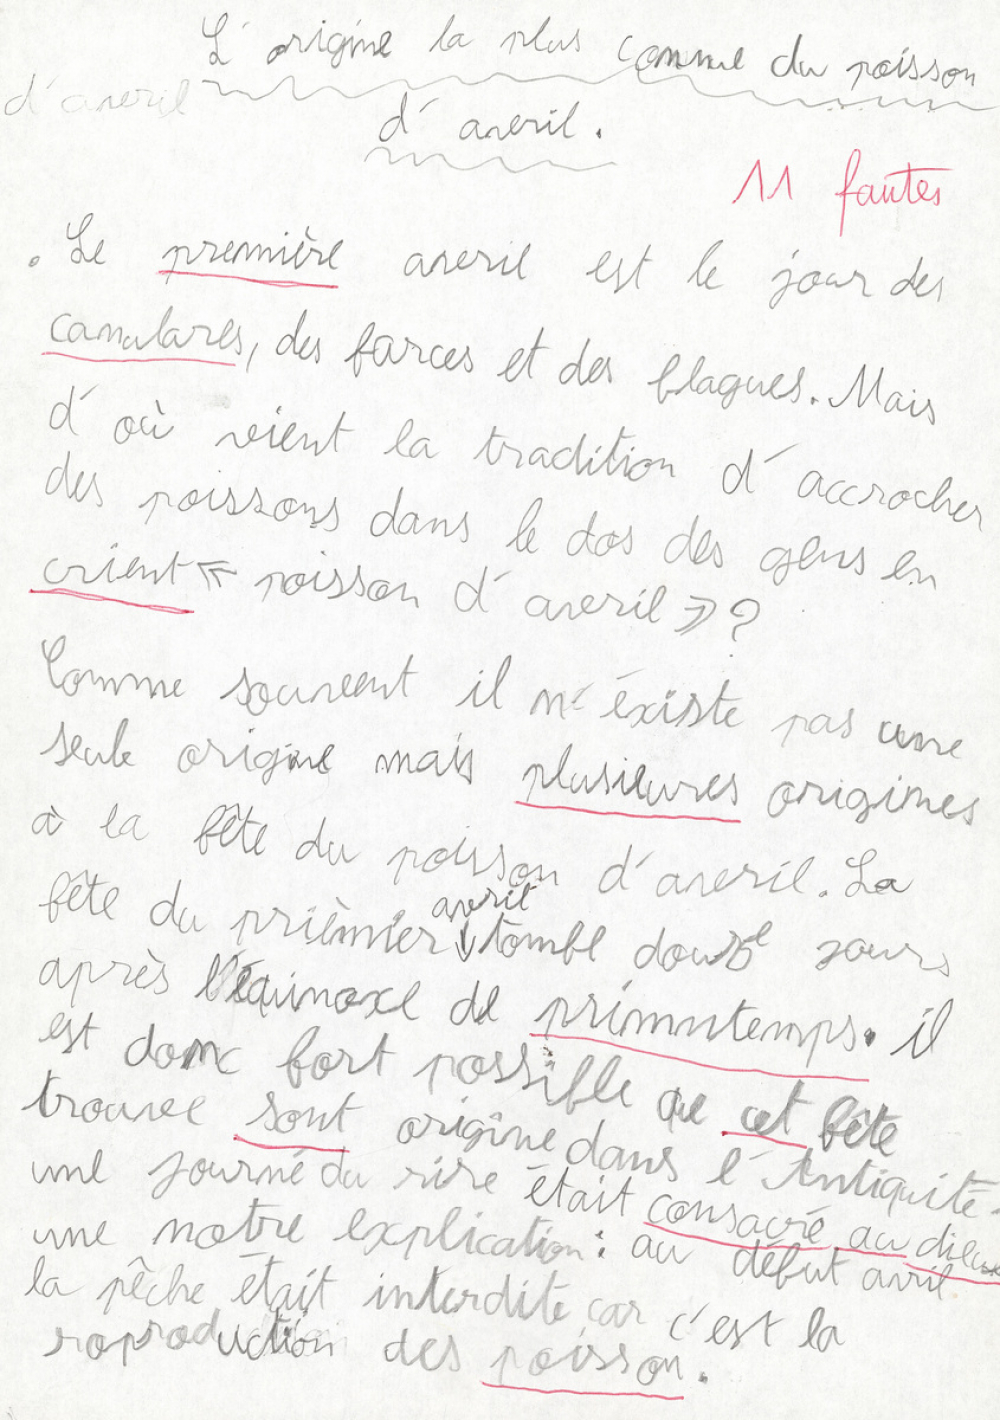 L'origine la plus connue du poisson
d'averil
d'averil.
11 fautes
. Le première averil est le jour des
canulares, des farces et des blagues. Mais
d'où vient la tradition d'accrocher
des poissons dans le dos des gens en
crient « poisson d'averil » ?
Comme souveent il n'éxiste pas une
seule origine mais plusieures origines
à la fête du poisson d'averil. La
fête du prièmier averil tombe douze jours
après l'équinoxe de primntemps. il
est donc fort possible que cet fête
trouvee sont origine dans l'Antiquité.
une journé du rire était consacré au dieux
une notre explication : au début avril
la pêche était interdite car c'est la
roproduction des poisson.